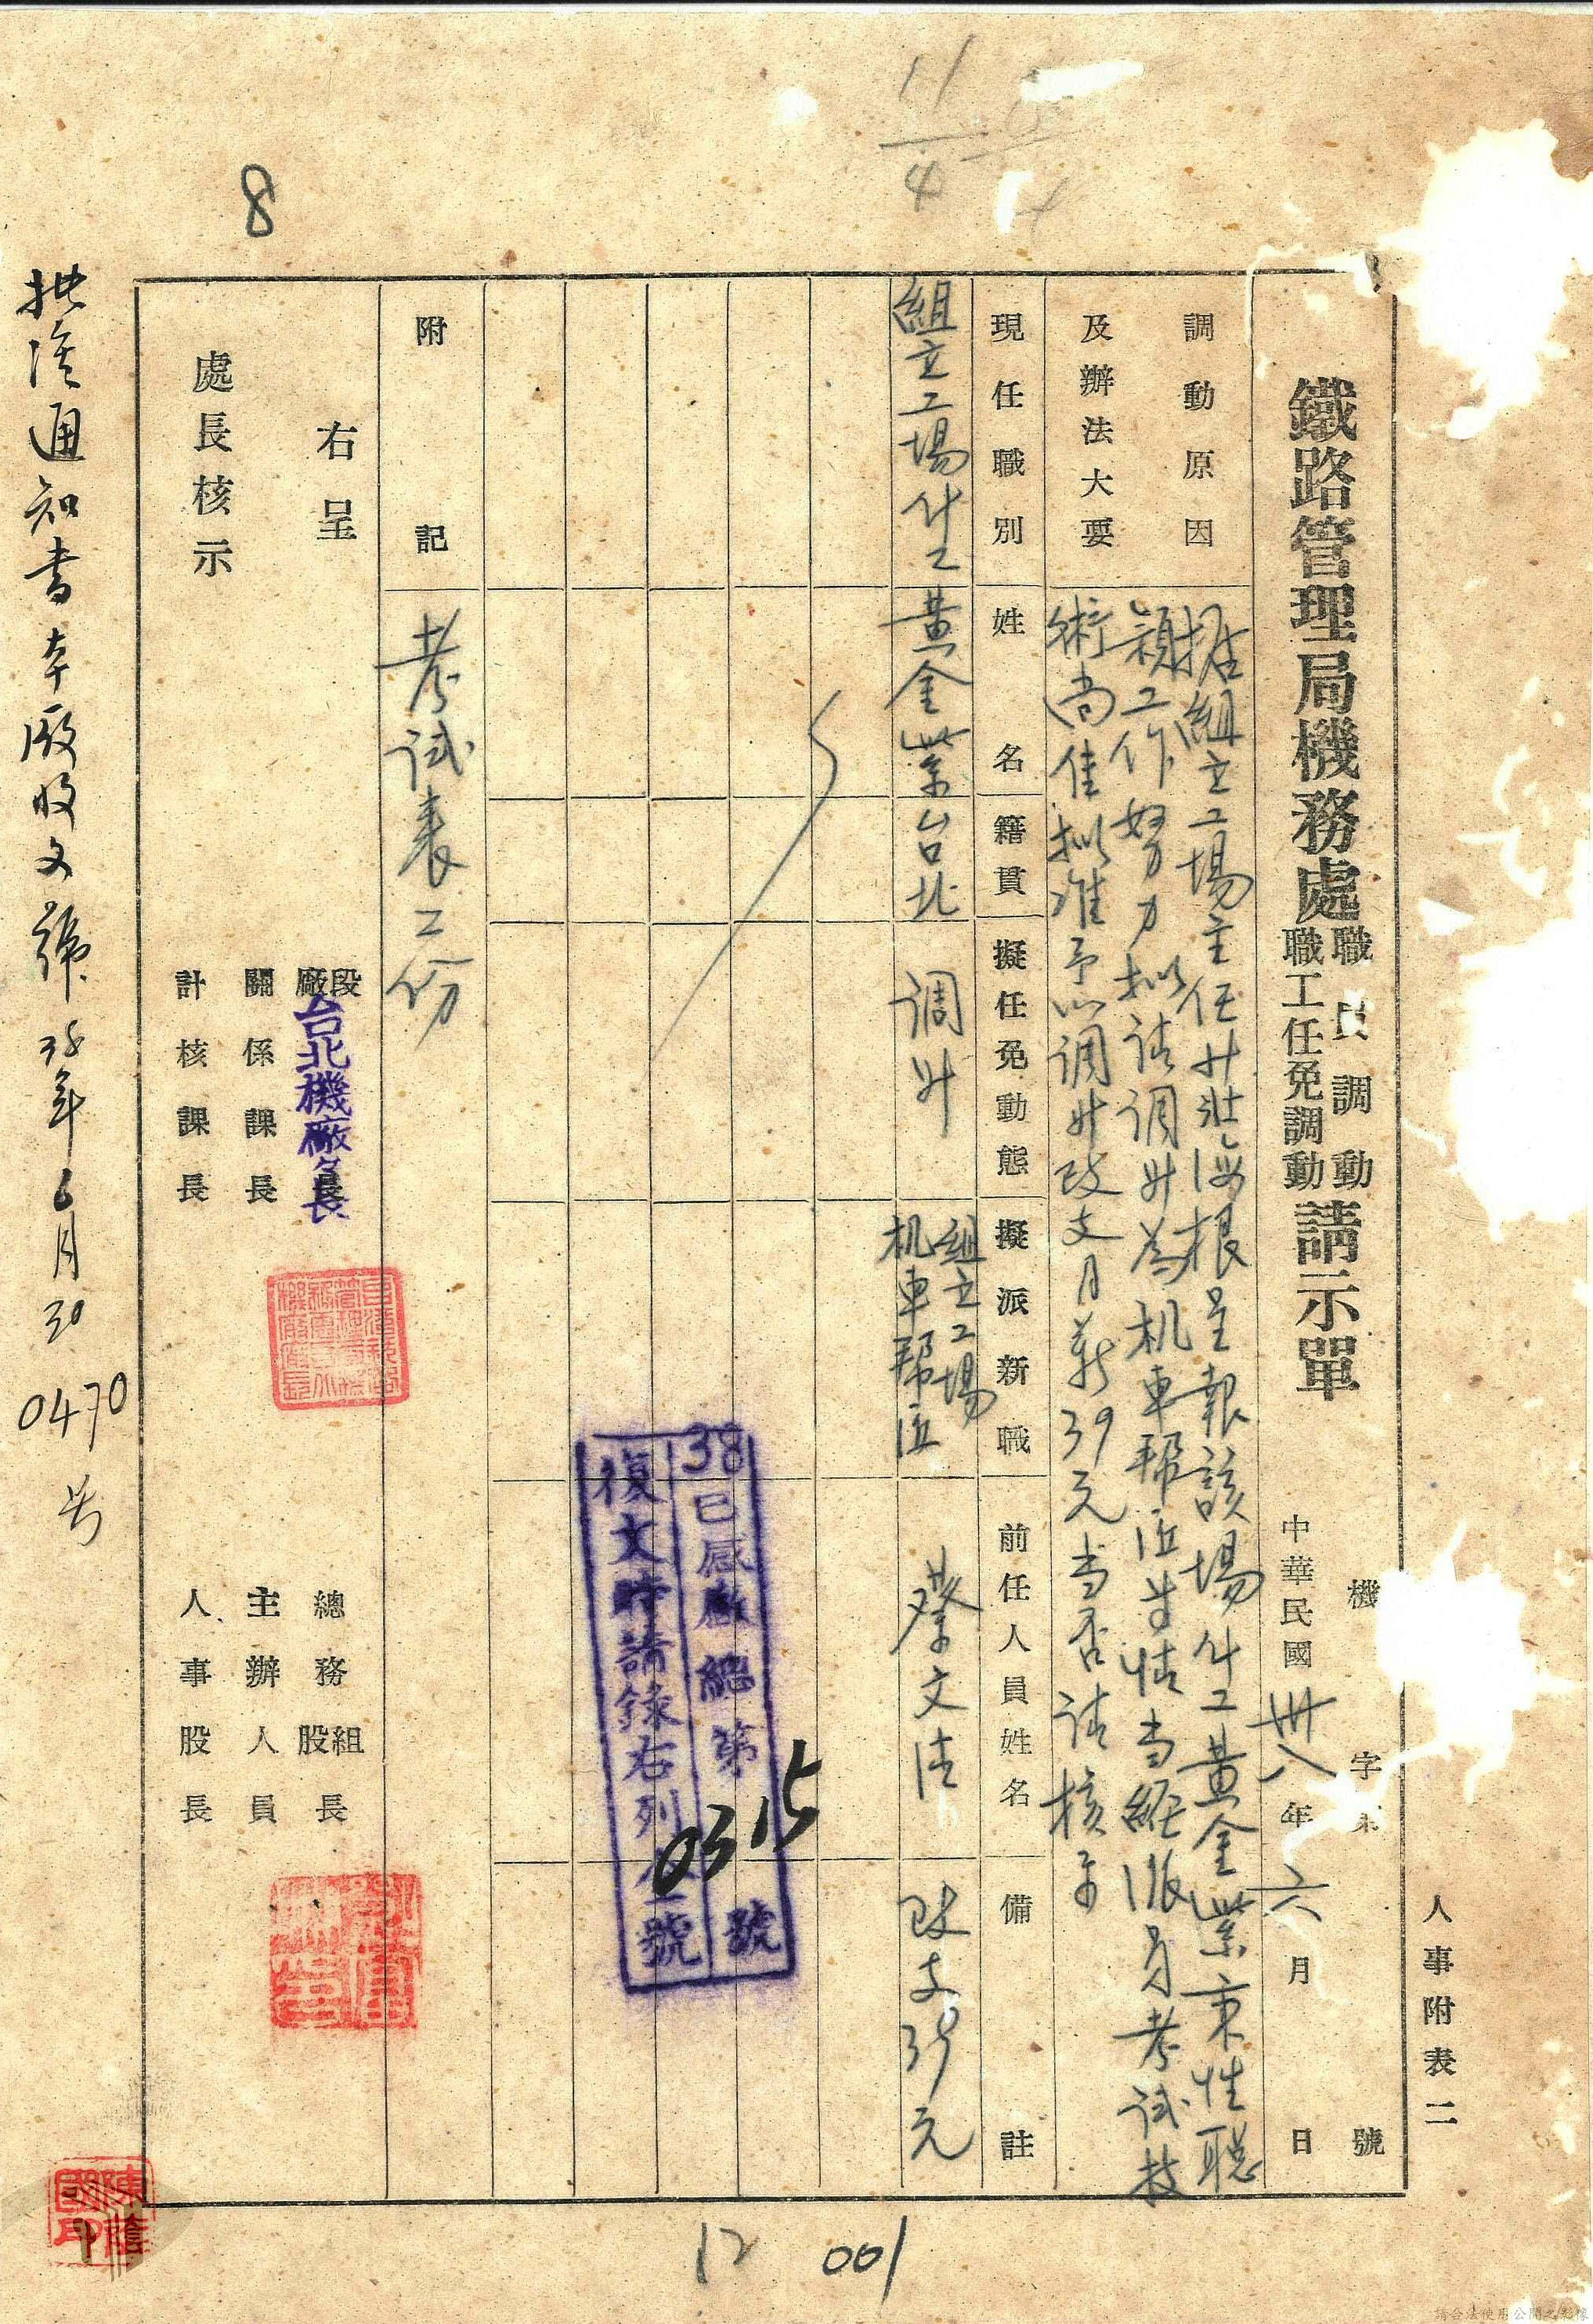 人事附表二
鐵路管理局機務處
職員調動
職工任免調動
請示單
機 字第 號
中華民國卅八年六月 日
調動原因
及辦法大要
据組立工場主任 根呈報該場什工黃金業秉性聰
穎工作努力拟請調升為机車帮匠等情当經派員考試技
術尚佳拟准予以調升改支月薪39元当否請核示
現任職別
姓名
籍貫
擬任免動態
擬派新職
前任人員姓名
備註
組立工場什工
黃金業
台北
调升
組立工場
机車帮匠
蔡文清
改支39元
附記
考試表二份
右呈
處長核示
段
廠
台北機廠長
關係課長
計核課長
總務組
股長
主辦人員
人事股長
38已感廠總第0315號
復文時請錄右列 號
批准通知書本廠收文號38年6月30
0470
号
8
11
4
12
001
請合法使用公開之影像